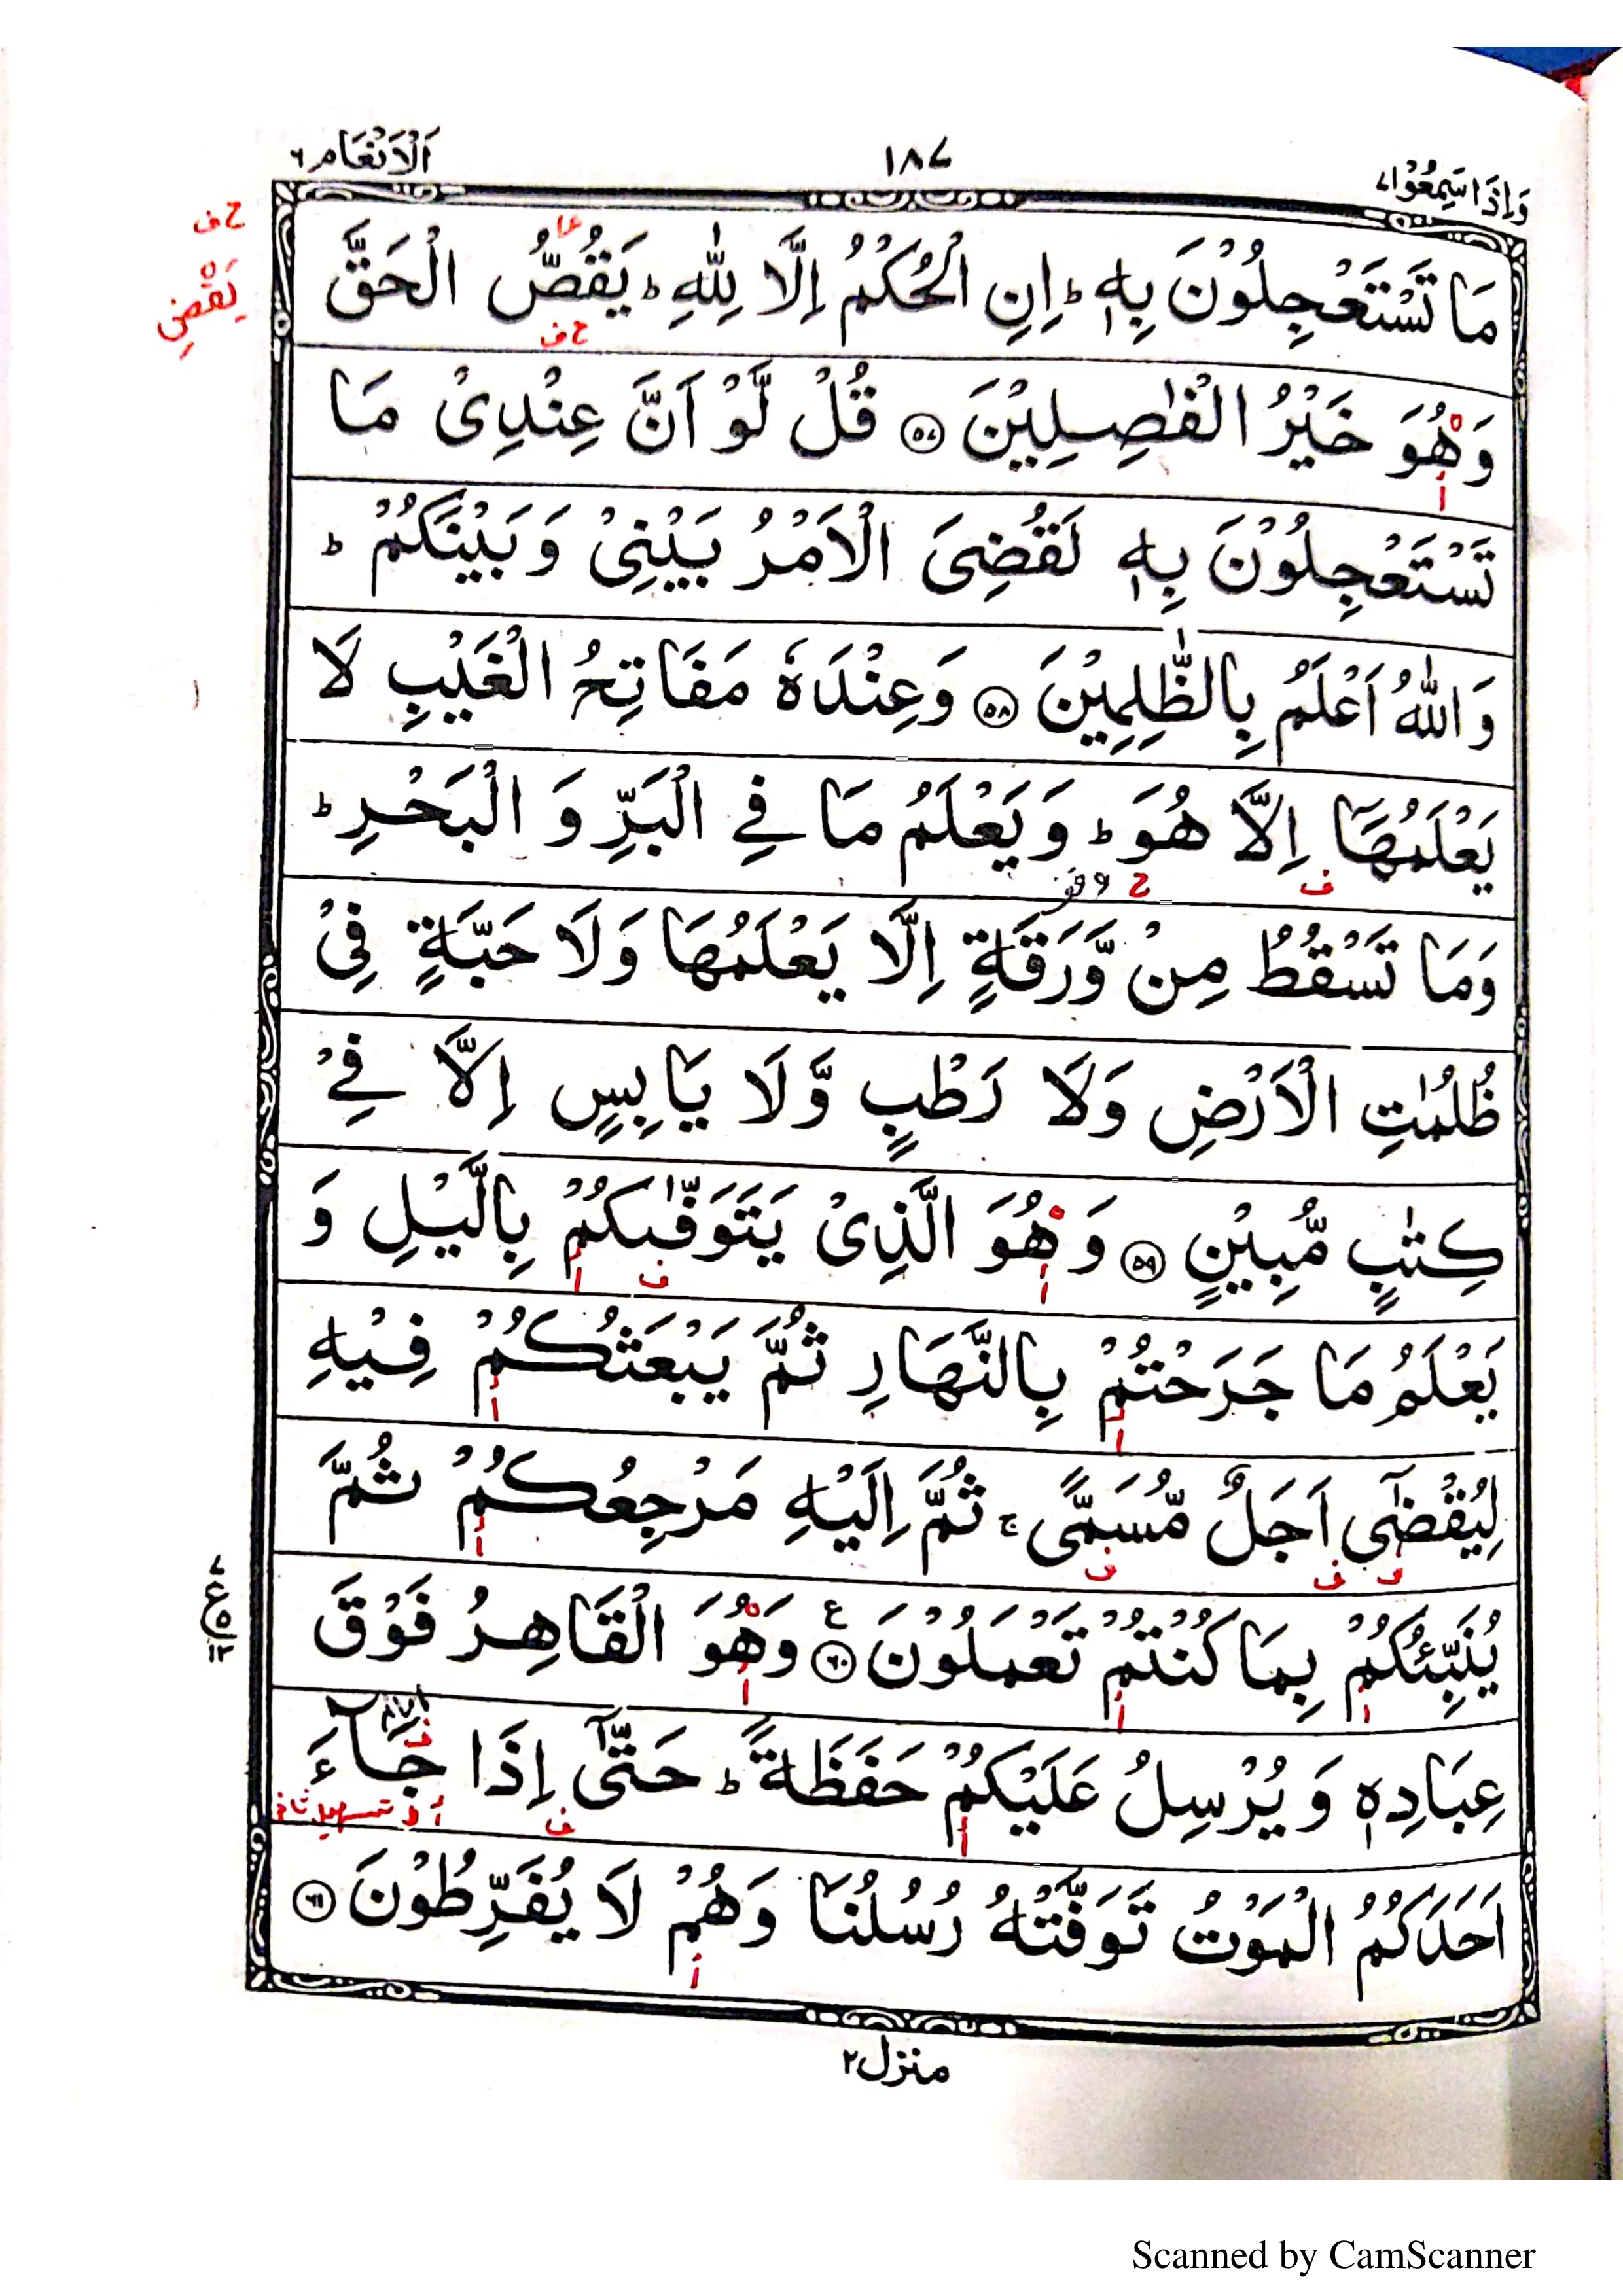 وَاِذَا سَمِعُوْا ۷
۱۸۷
اَلْاَنْعَام ۶
مَا تَسْتَعْجِلُوْنَ بِهٖ ؕ اِنِ الْحُكْمُ اِلَّا لِلّٰهِ ؕ يَقُصُّ الْحَقَّ
ح ف
يَقْضِ
ح ف
وَهُوَ خَيْرُ الْفٰصِلِيْنَ ۝۵۷ قُلْ لَّوْ اَنَّ عِنْدِيْ مَا
تَسْتَعْجِلُوْنَ بِهٖ لَقُضِيَ الْاَمْرُ بَيْنِيْ وَبَيْنَكُمْ ؕ
وَاللّٰهُ اَعْلَمُ بِالظّٰلِمِيْنَ ۝۵۸ وَعِنْدَهٗ مَفَاتِحُ الْغَيْبِ لَا
يَعْلَمُهَاۤ اِلَّا هُوَ ؕ وَيَعْلَمُ مَا فِي الْبَرِّ وَ الْبَحْرِ ؕ
ف ح
وَمَا تَسْقُطُ مِنْ وَّرَقَةٍ اِلَّا يَعْلَمُهَا وَلَا حَبَّةٍ فِيْ
ظُلُمٰتِ الْاَرْضِ وَلَا رَطْبٍ وَّلَا يَابِسٍ اِلَّا فِيْ
كِتٰبٍ مُّبِيْنٍ ۝۵۹ وَهُوَ الَّذِيْ يَتَوَفّٰىكُمْ بِالَّيْلِ وَ
ا ف ا
يَعْلَمُ مَا جَرَحْتُمْ بِالنَّهَارِ ثُمَّ يَبْعَثُكُمْ فِيْهِ
ا ا
لِيُقْضٰۤى اَجَلٌ مُّسَمًّى ۚ ثُمَّ اِلَيْهِ مَرْجِعُكُمْ ثُمَّ
ف ف ف ا
يُنَبِّئُكُمْ بِمَا كُنْتُمْ تَعْمَلُوْنَ ۝۶۰ ع وَهُوَ الْقَاهِرُ فَوْقَ
ا ا ا
۷
ع ۵
۱۳
عِبَادِهٖ وَيُرْسِلُ عَلَيْكُمْ حَفَظَةً ؕ حَتّٰۤى اِذَا جَآءَ
ا ف تسهيل ثانى
اَحَدَكُمُ الْمَوْتُ تَوَفَّتْهُ رُسُلُنَا وَهُمْ لَا يُفَرِّطُوْنَ ۝۶۱
ا
منزل ۲
Scanned by CamScanner